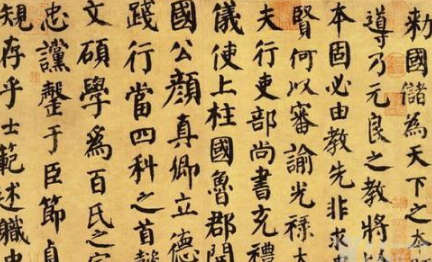 勅國儲為天下之本
導乃元良之教將以
本固必由教先非求
賢何以審諭光祿大
夫行吏部尚書充禮
儀使上柱國魯郡開
國公顏真卿立德
踐行當四科之首懿
文碩學為百氏之宗
忠讜罄于臣節貞
規存乎士範述職中